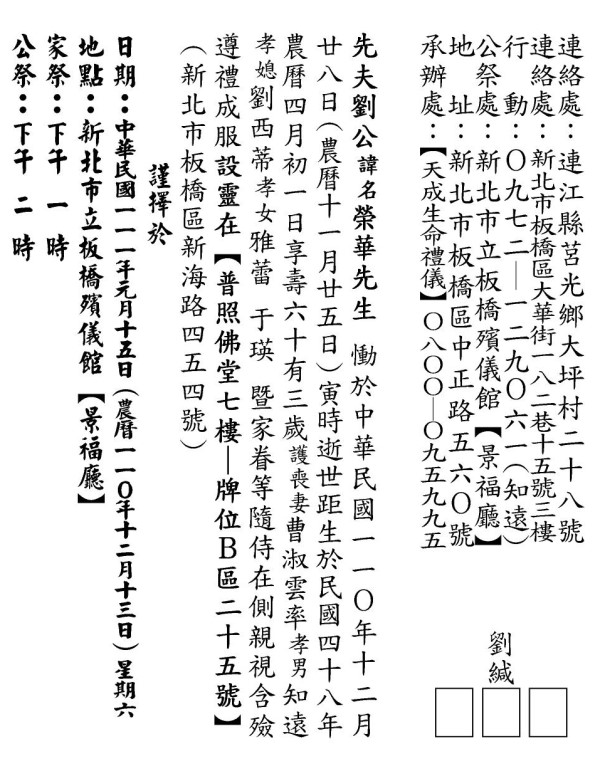 連絡處：連江縣莒光鄉大坪村二十八號
連絡處：新北市板橋區大華街一八二巷十五號三樓
行動：〇九七二—一二九〇六一（知遠）
公祭處：新北市立板橋殯儀館【景福廳】
地址：新北市板橋區中正路五六〇號
承辦處：【天成生命禮儀】〇八〇〇—〇九五九九五
劉緘
先夫劉公諱名榮華先生 慟於中華民國一一〇年十二月
廿八日（農曆十一月廿五日）寅時逝世距生於民國四十八年
農曆四月初一日享壽六十有三歲護喪妻曹淑雲率孝男知遠
孝媳劉西蒂孝女雅蕾 于瑛 暨家眷等隨侍在側親視含殮
遵禮成服設靈在【普照佛堂七樓—牌位B區二十五號】
（新北市板橋區新海路四五四號）
謹擇於
日期：中華民國一一一年元月十五日（農曆一一〇年十二月十三日）星期六
地點：新北市立板橋殯儀館【景福廳】
家祭：下午 一 時
公祭：下午 二 時